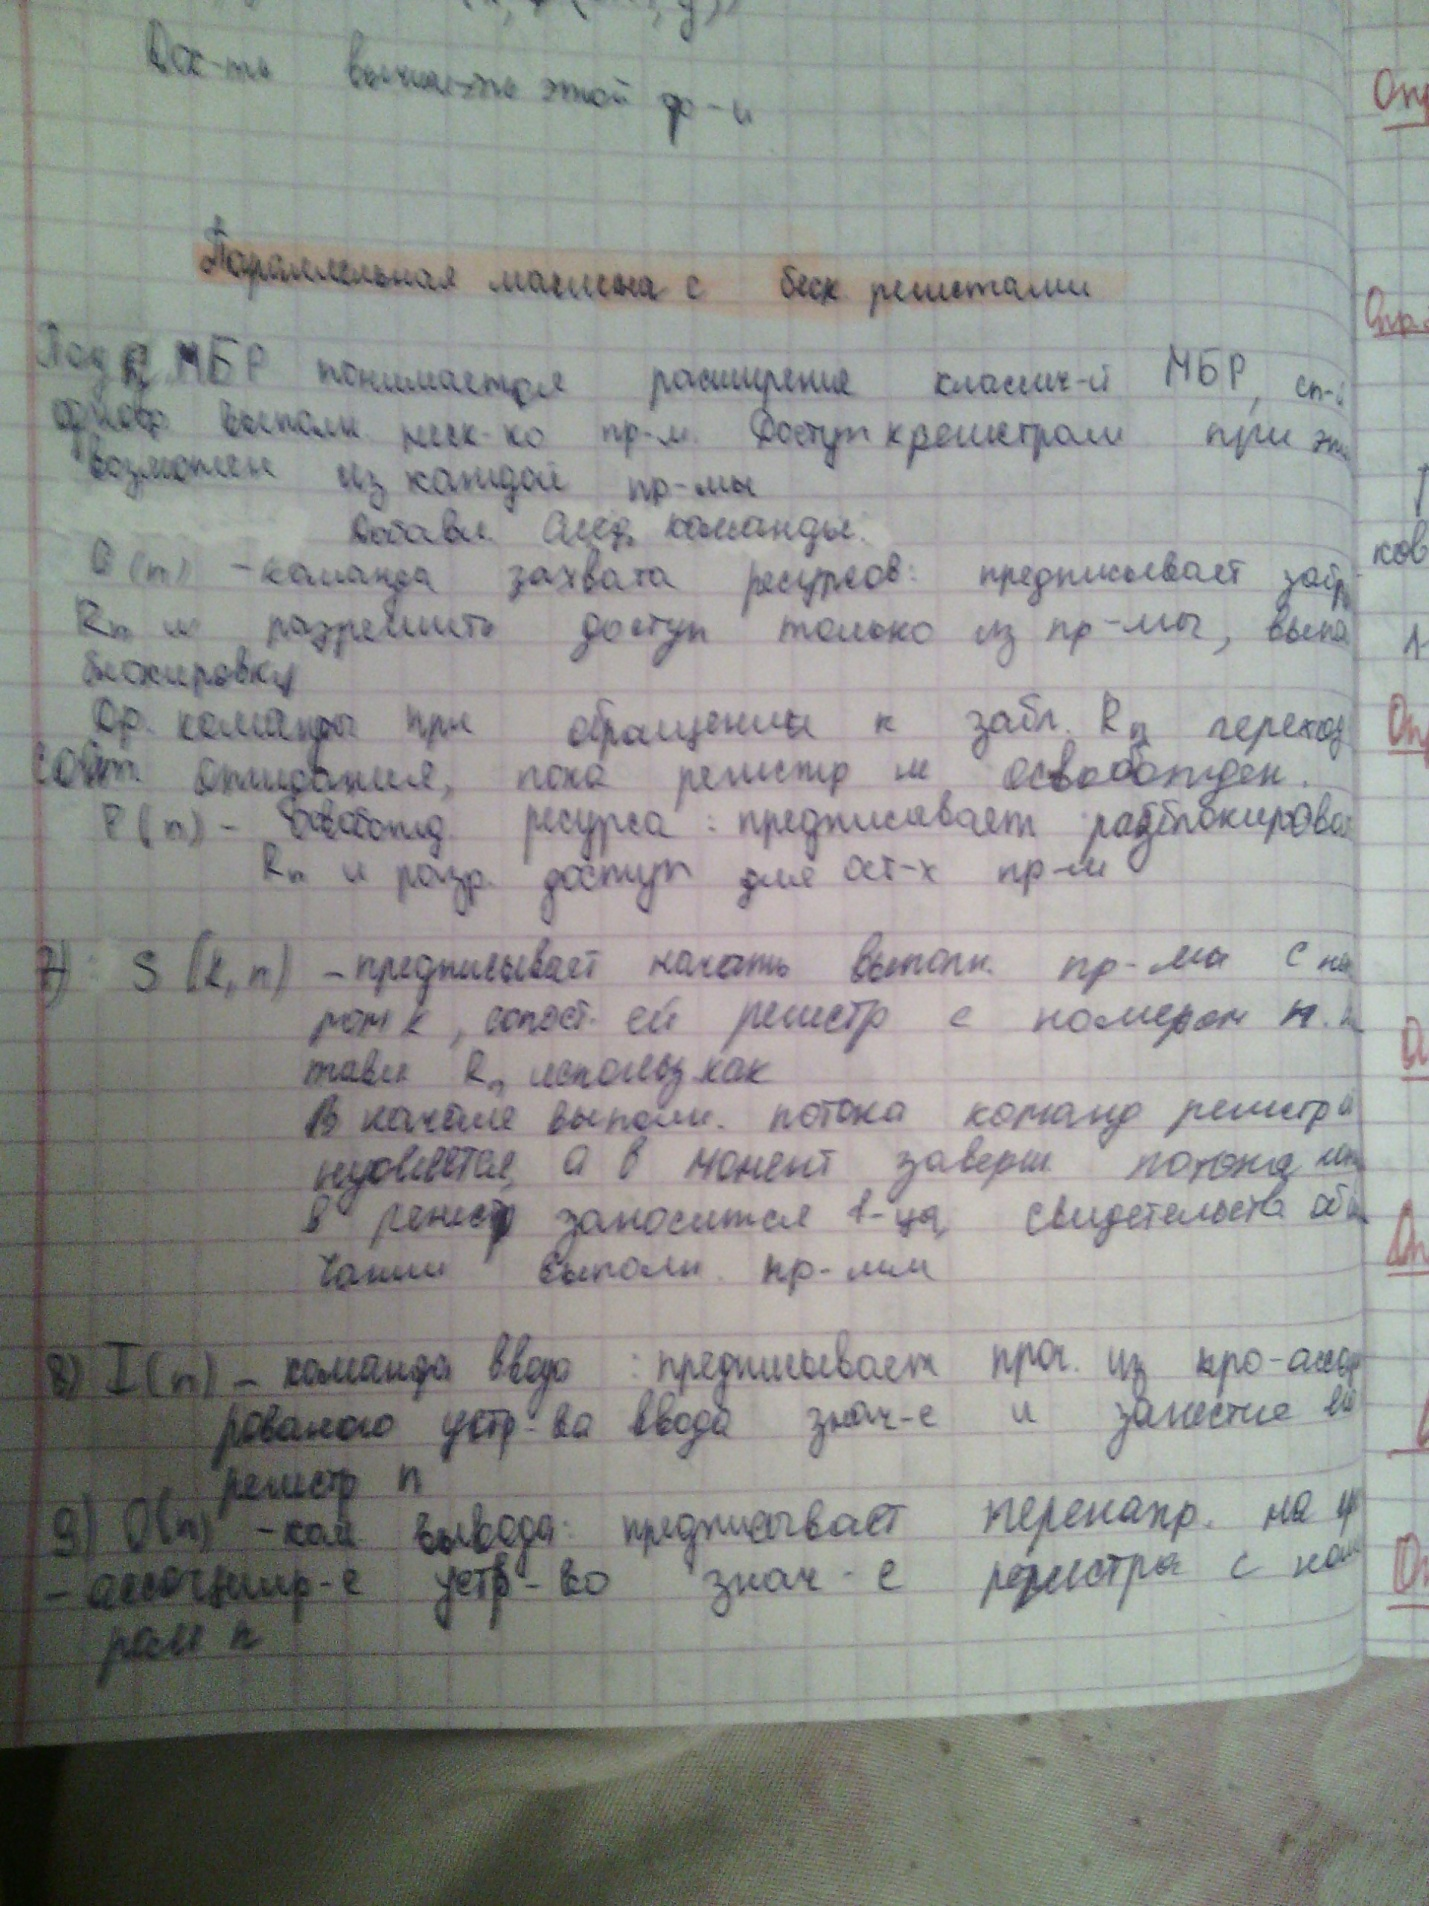 Док-ть вычис-ть этой ф-и
Параллельная машина с беск регистрами
Под МБР понимается расширение классич-й МБР, сп-й
однов. выполн. неск-ко пр-м. Доступ к регистрам при эт
возможен из каждой пр-мы
Добавл. След. команды:
(n) - команда захвата ресурсов: предписывает забл
Rn и разрешить доступ только из пр-мы, выпо
блокировку
Др. команды при обращении к забл. Rn переход
сост. ожидания, пока регистр не освобожден.
P(n) - освобожд. ресурса: предписывает разблокироват
Rn и разр. доступ для ост-х пр-м
7) S(k,n) - предписывает начать выполн. пр-мы с но
ром k, сопост. ей регистр с номером n.
Rn использ как
В начале выполн. потока команд регистр
нуляется, а в момент заверш. потока
в регистр заносится 1-ца, свидетельств об
чании выполн. пр-мы
8) I(n) - команда ввода: предписывает проч. из про-ассоц
рованого устр-ва ввода знач-е и занести в
регистр n
9) O(n) - ком вывода: предписывает перенапр. на
- ассоциир-е устр-во знач-е регистра с ном
ром n
Опр
Опр.
ков
Оп
О
Оп
Оп